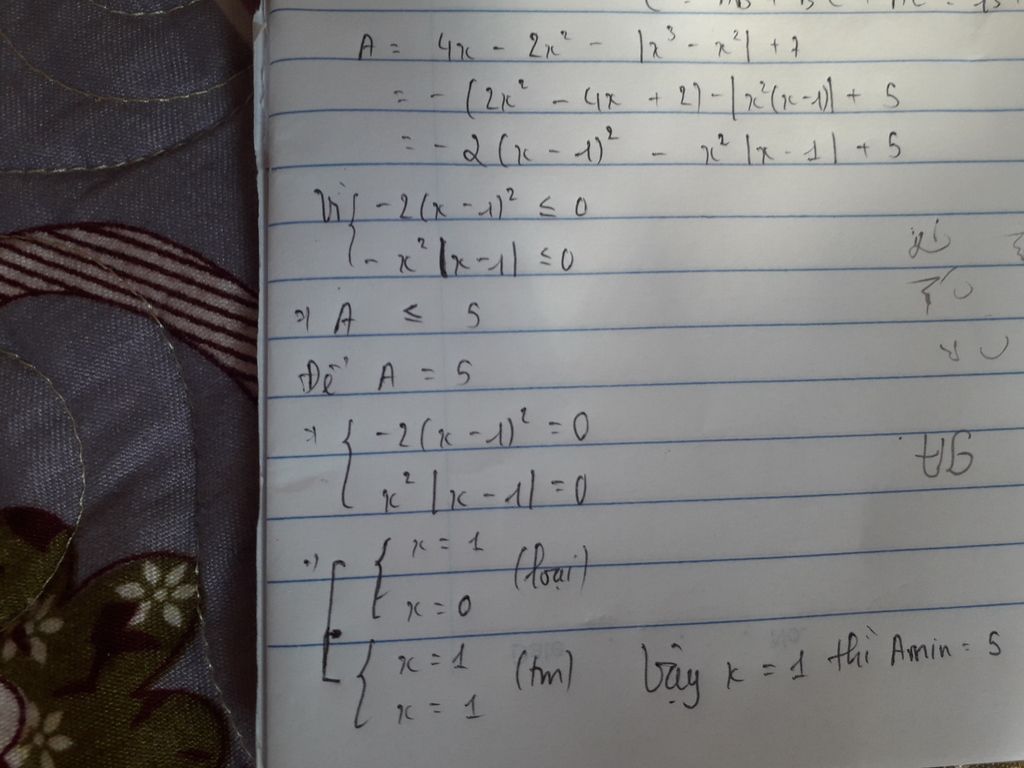 A = 4x - 2x² - |x³ - x²| + 7
= - (2x² - 4x + 2) - |x²(x-1)| + 5
= - 2(x - 1)² - x² |x - 1| + 5
Vì { -2(x - 1)² ≤ 0
- x² |x - 1| ≤ 0
=> A ≤ 5
Để A = 5
=> { -2(x - 1)² = 0
x² |x - 1| = 0
=> [ { x = 1
x = 0 (loại)
{ x = 1
x = 1 (tm) Vậy x = 1 thì Amin = 5